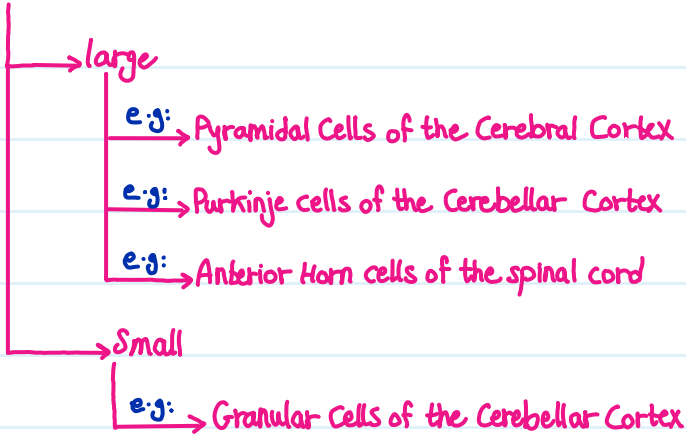 large
e.g: Pyramidal Cells of the Cerebral Cortex
e.g: Purkinje cells of the Cerebellar Cortex
e.g: Anterior Horn cells of the spinal cord
Small
e.g: Granular Cells of the Cerebellar Cortex